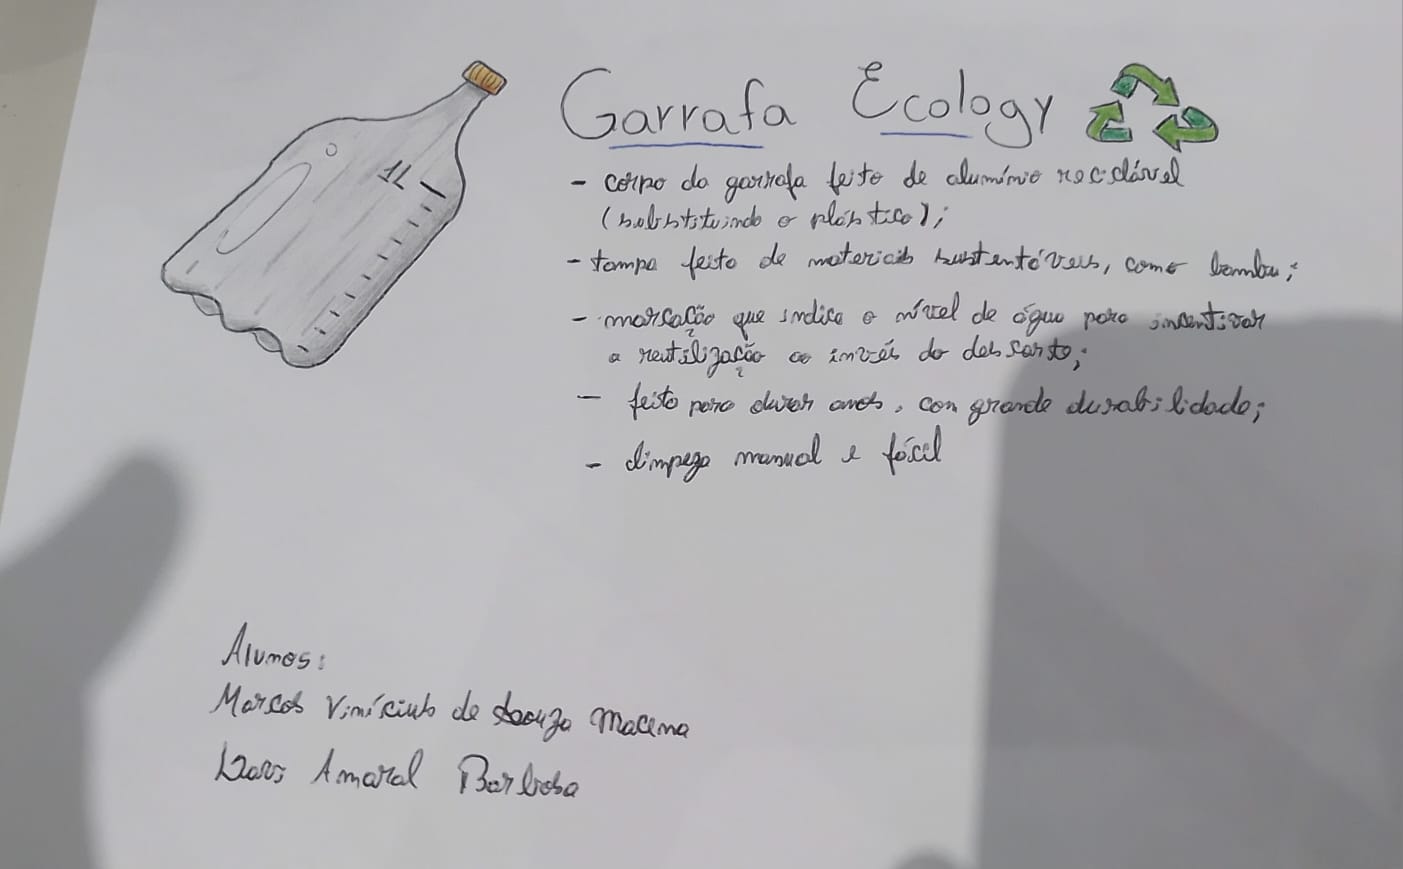 1L
Garrafa Ecology
- corpo da garrafa feito de alumínio reciclável
(substituindo o plástico);
- tampa feito de materiais sustentáveis, como bambu;
- marcação que indica o nível de água para incentivar
a reutilização ao invés do descarto;
- feito para durar anos, con grande durabilidade;
- limpeza manual e fácil
Alunos:
Marcos Vinícius de Souza Macena
Amaral Barbosa